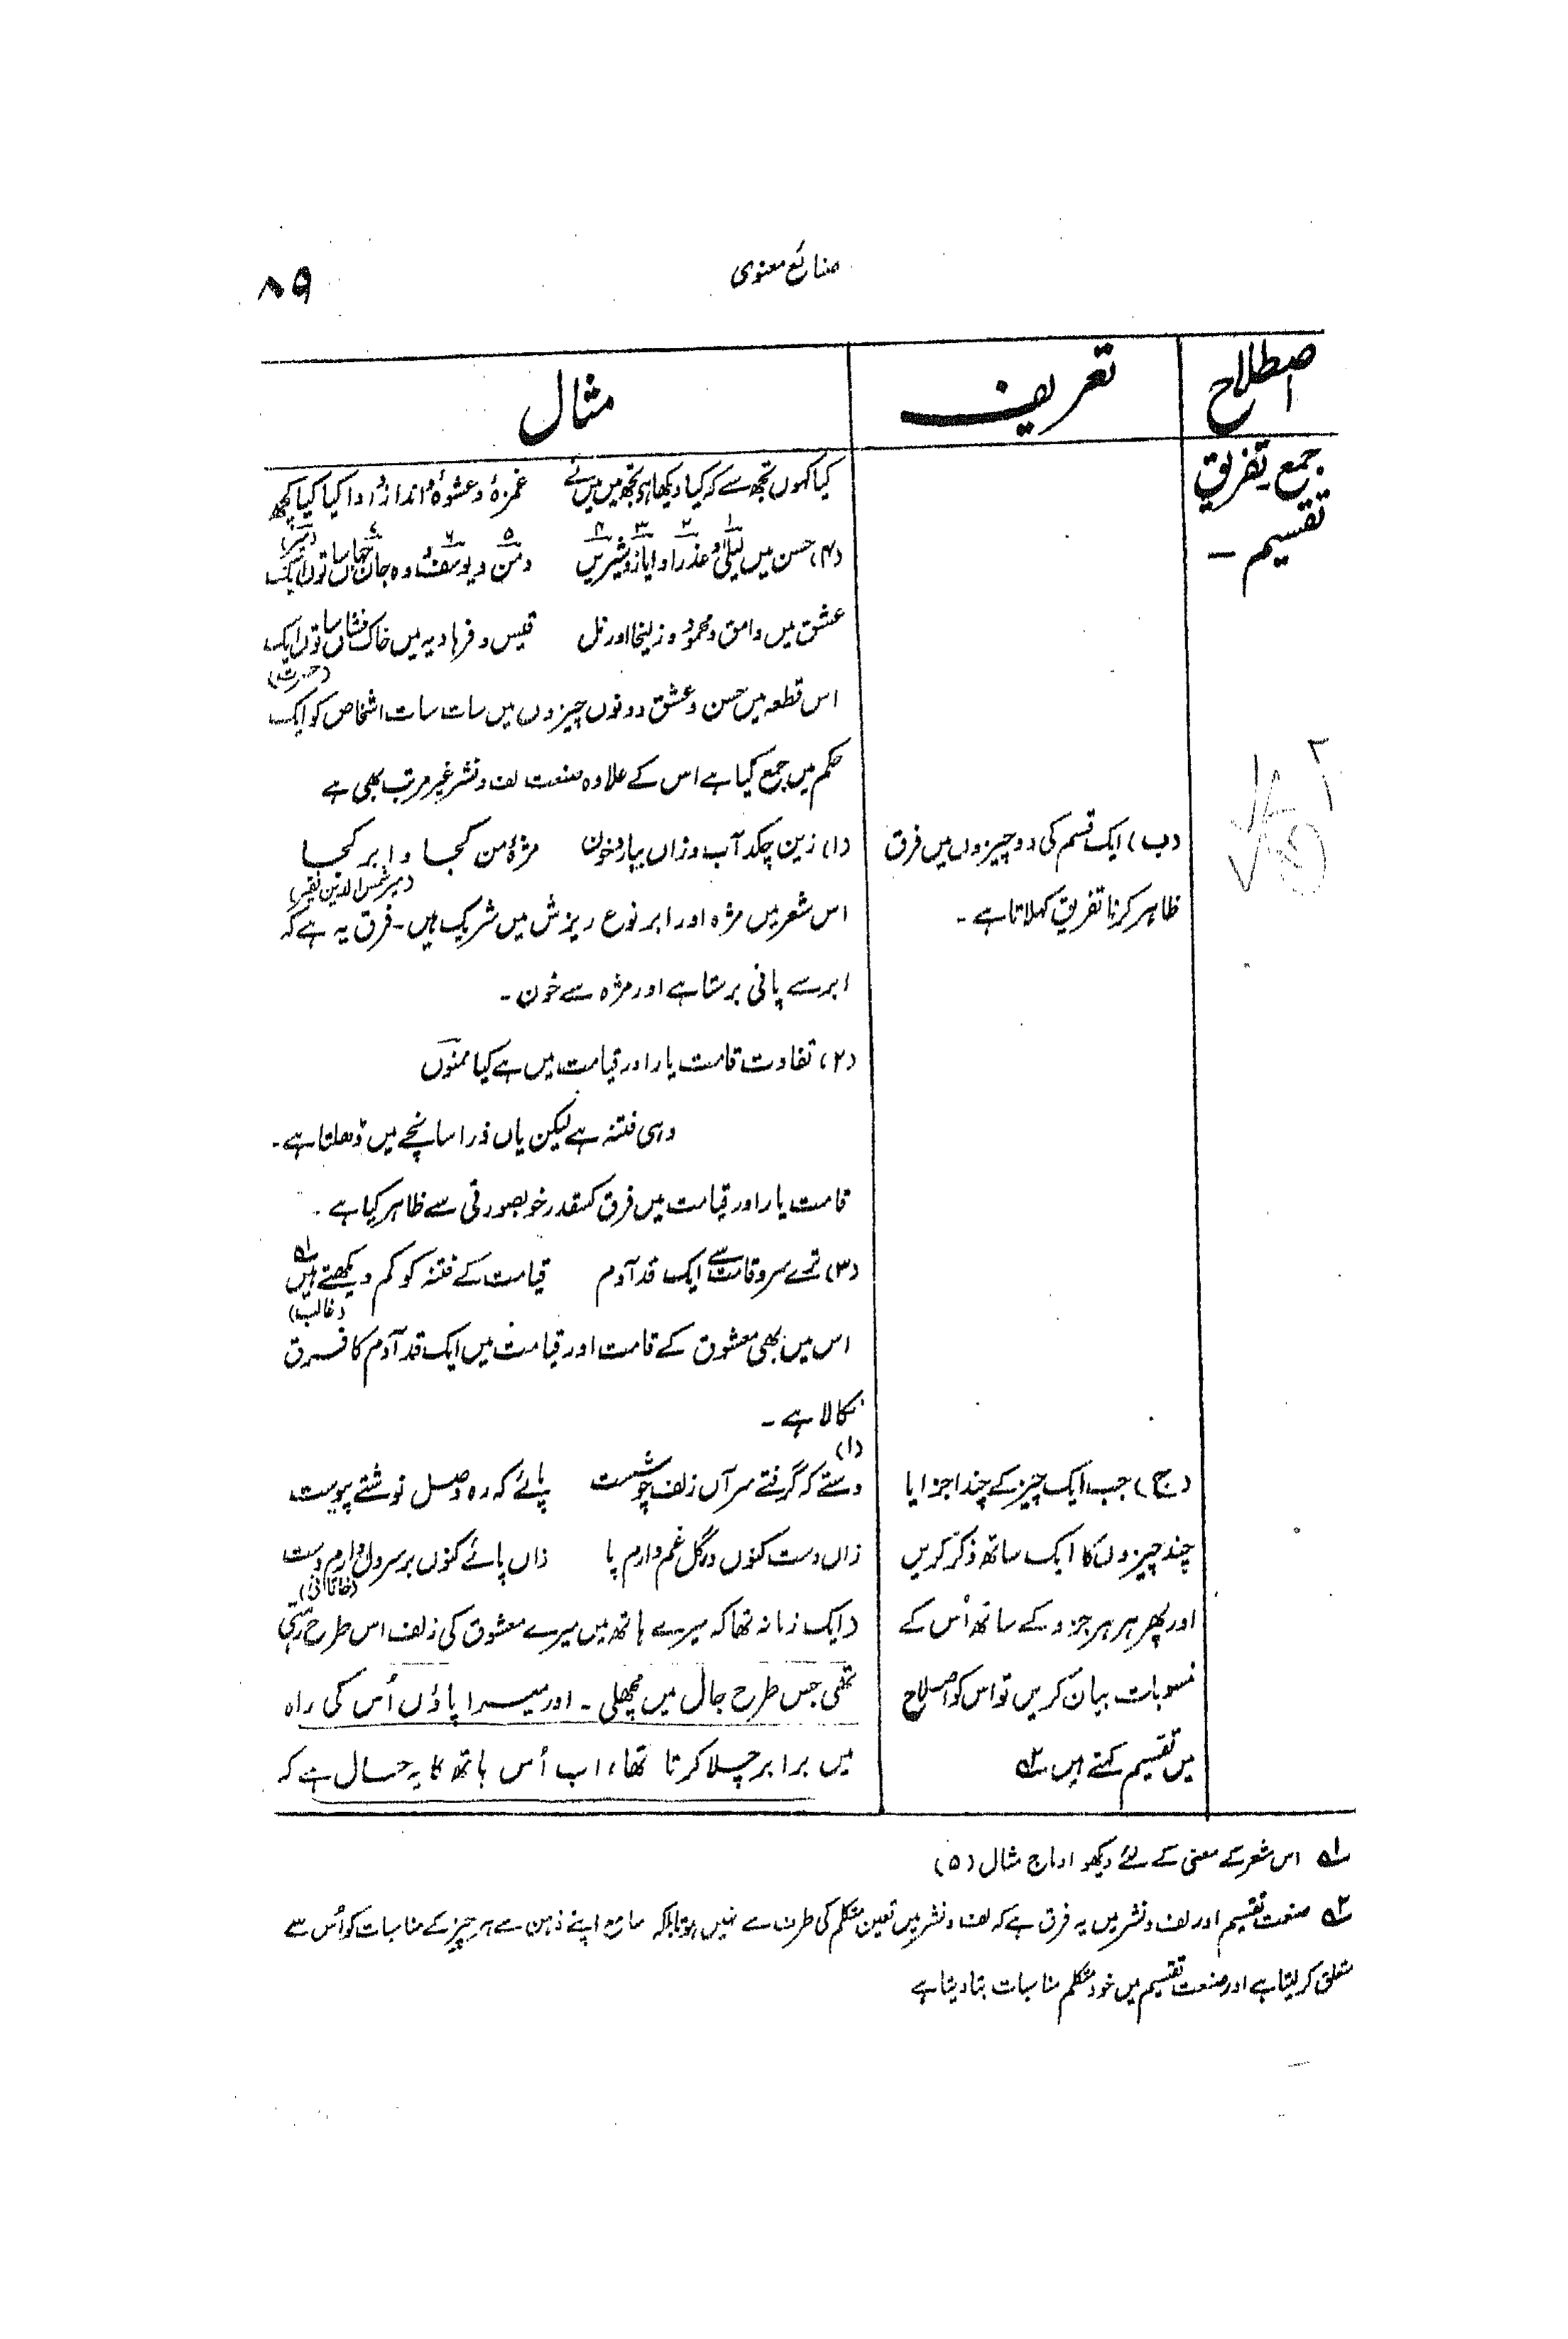 صنائع معنوی
۸۹
اصطلاح
تعریف
مثال
جمع۔ تفریق
تقسیم ۔
کیا کہوں تجھ سے کہ کیا دیکھا ہو تجھ میں میں نے غمزۂ و عشوۂ و انداز و ادا کیا کیا کچھ
۱ ۲ ۳ ۴ ۵ ۶ ۷
(۴) حسن میں لیلیٰ و عذرا و ایاز و شیریں دمن و یوسف وہ جان جہاں ساتوں ایک
عشق میں وامق و محمود و زلیخا اور نل قیس و فرہاد یہ میں خاک فشاں ساتوں ایک
(حسرت)
اس قطعہ میں حسن و عشق دونوں چیزوں میں سات سات اشخاص کو ایک
حکم میں جمع کیا ہے اس کے علاوہ صنعت لف و نشر غیر مرتب بھی ہے
(ب) ایک قسم کی دو چیزوں میں فرق
ظاہر کرنا تفریق کہلاتا ہے ۔
(۱) زین چکد آب و زاں ببارد خون مژۂ من کجا و ابر کجا
(میر شمس الدین فقیر)
اس شعر میں مژہ اور ابر نوع ریزش میں شریک ہیں۔ فرق یہ ہے کہ
ابر سے پانی برستا ہے اور مژہ سے خون ۔
(۲) تفاوت قامت یار اور قیامت میں ہے کیا ممنوں
وہی فتنہ ہے لیکن یاں ذرا سانچے میں ڈھلتا ہے ۔
قامت یار اور قیامت میں فرق کسقدر خوبصورتی سے ظاہر کیا ہے ۔
(۳) ترے سرو قامت سے ایک قد آدم قیامت کے فتنہ کو کم دیکھتے ہیں ۱؎
(غالب)
اس میں بھی معشوق کے قامت اور قیامت میں ایک قد آدم کا فرق
نکالا ہے ۔
(ج) جب ایک چیز کے چند اجزا یا
چند چیزوں کا ایک ساتھ ذکر کریں
اور پھر ہر ہر جزو کے ساتھ اُس کے
منسوبات بیان کریں تو اس کو اصطلاح
میں تقسیم کہتے ہیں ۲؎
(۱)
دستے کہ گرفتے سر آں زلف چو شست پائے کہ رہ وصل نوشتے پیوست
زاں دست کنوں در گل غم دارم پا زاں پائے کنوں بر سر دل دارم دست
(خاقانی)
(ایک زمانہ تھا کہ میرے ہاتھ میں میرے معشوق کی زلف اس طرح رہتی
تھی جس طرح جال میں مچھلی ۔ اور میرا پاؤں اُس کی راہ
میں برابر چلا کرتا تھا، اب اُس ہاتھ کا یہ حال ہے کہ
۱؎ اس شعر کے معنی کے لئے دیکھو ادماج مثال (۵)
۲؎ صنعت تقسیم اور لف و نشر میں یہ فرق ہے کہ لف و نشر میں تعین متکلم کی طرف سے نہیں ہوتا بلکہ سامع اپنے ذہن سے ہر چیز کے مناسبات کو اُس سے
متعلق کر لیتا ہے اور صنعت تقسیم میں خود متکلم مناسبات بتا دیتا ہے